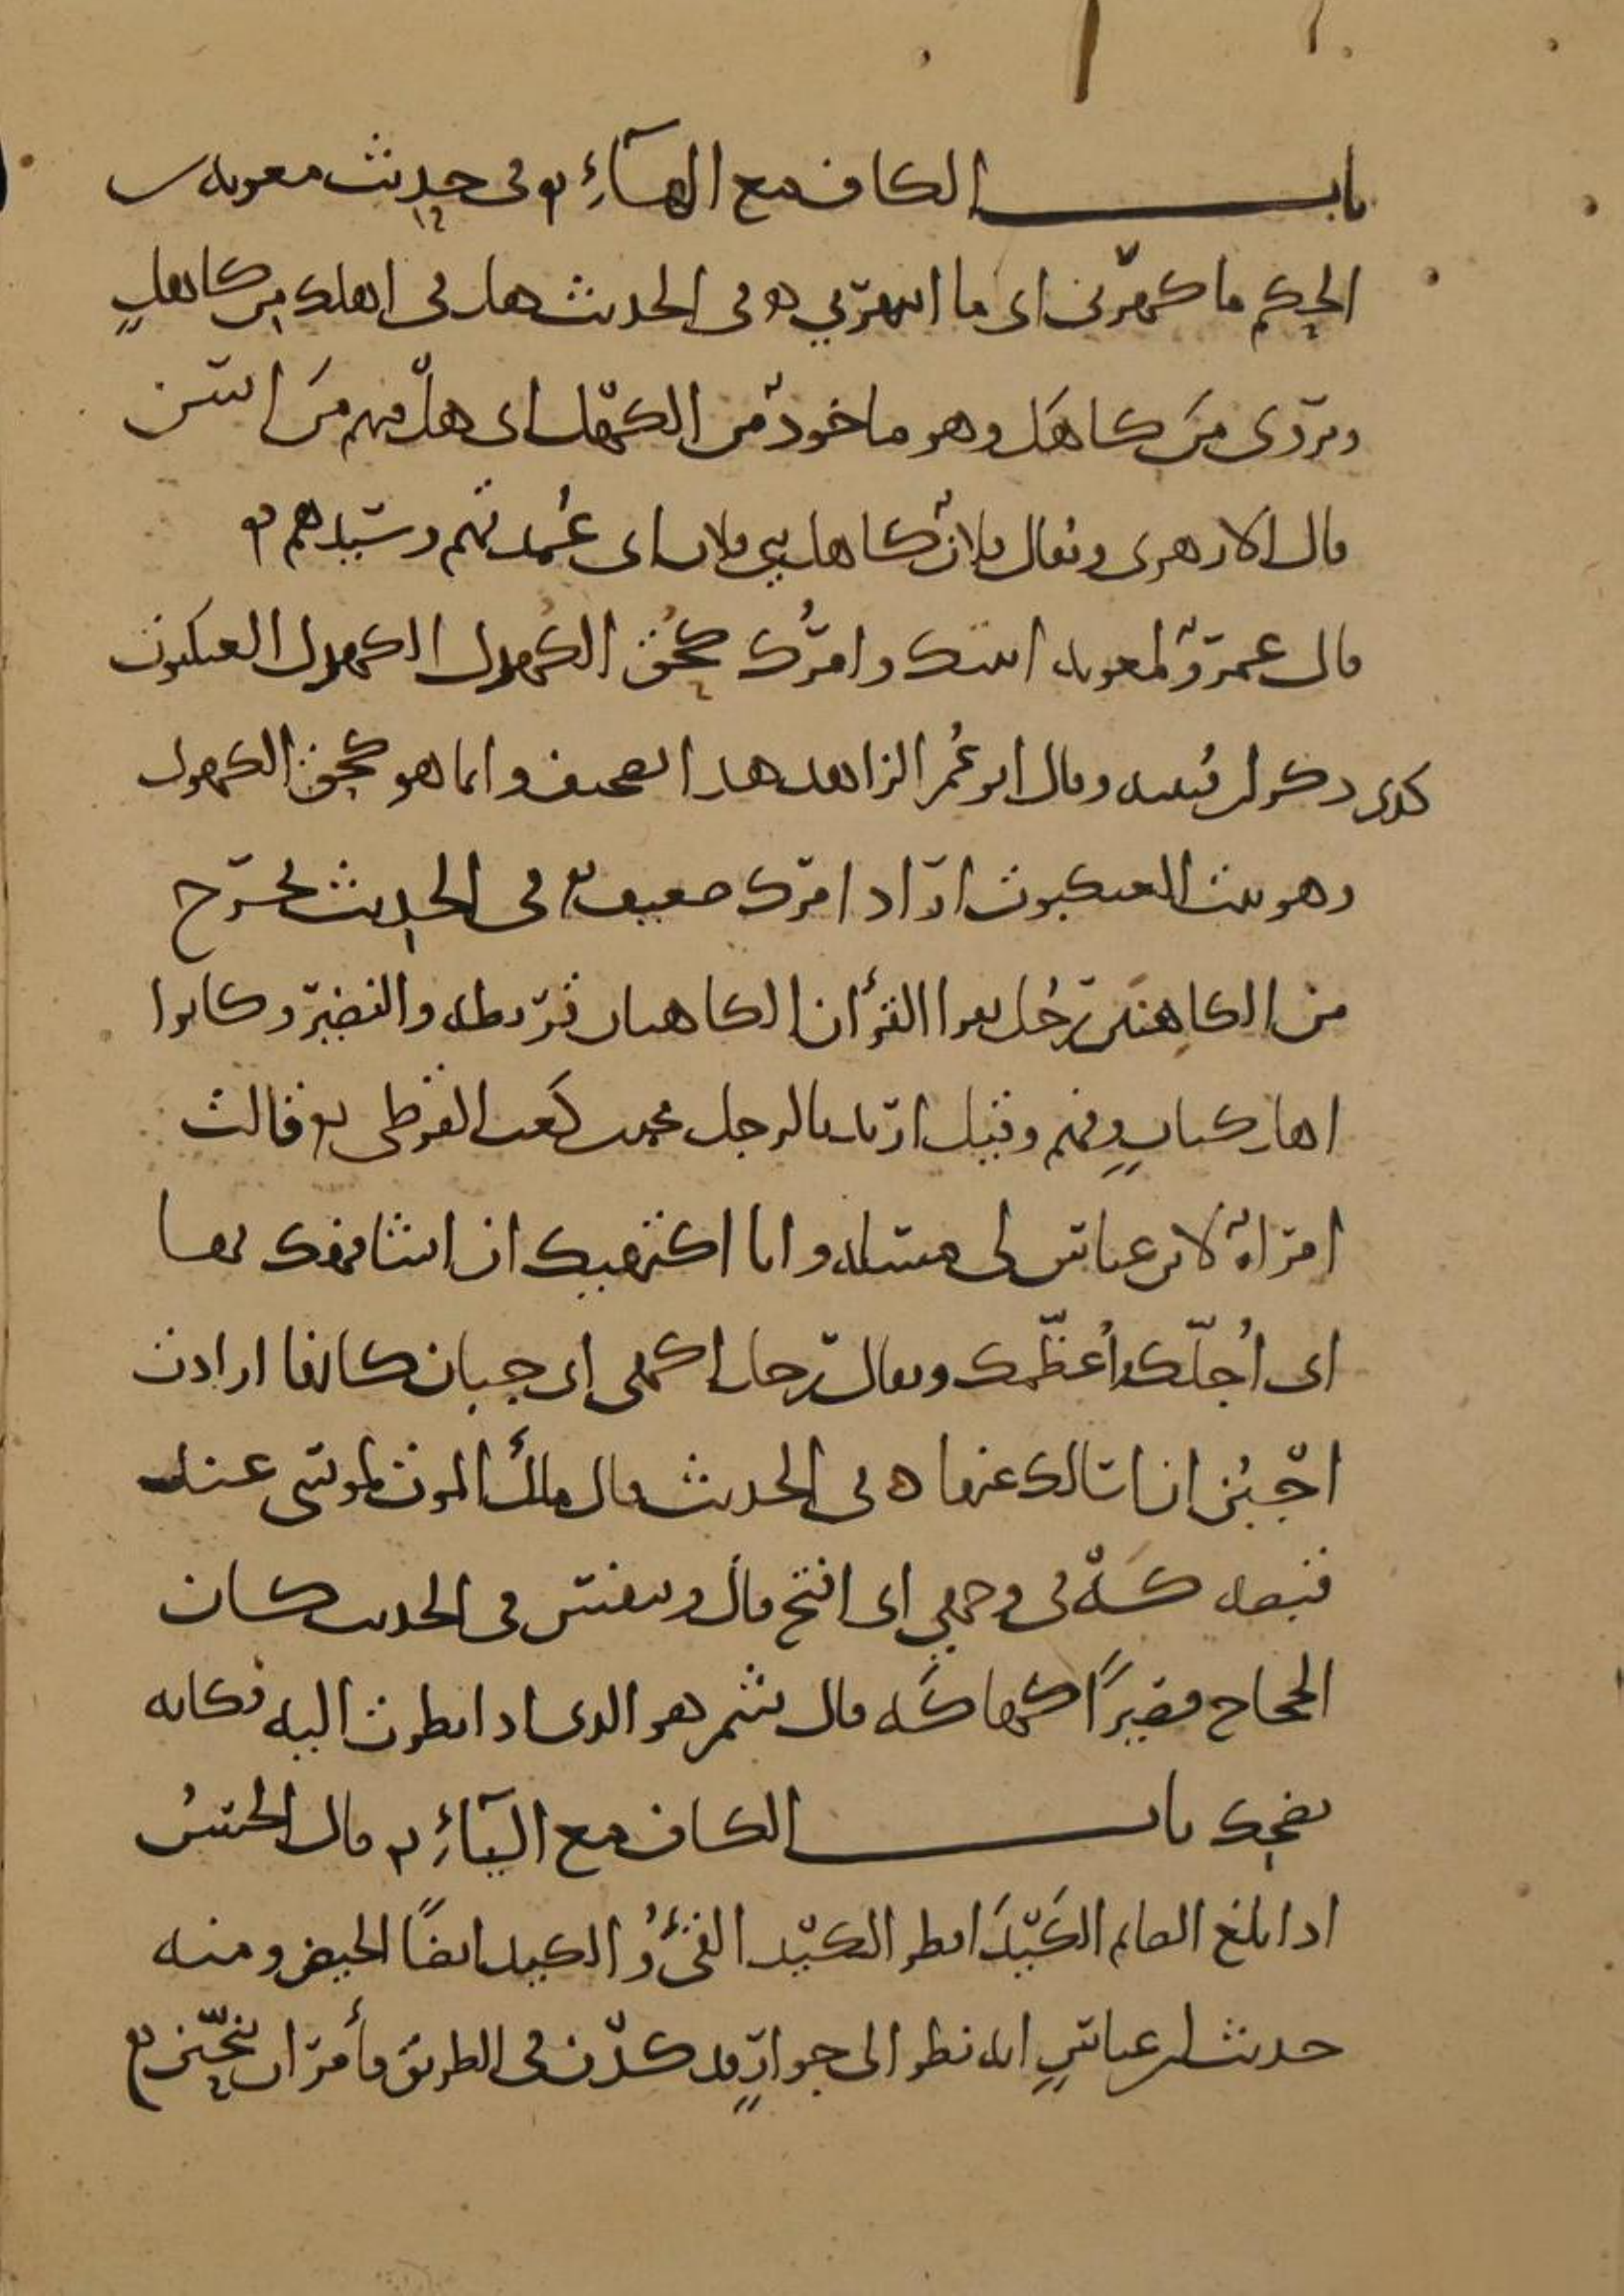 باب الكاف مع الهاء في حديث معوية بن
الحكم ما كهرني اي ما انتهرني في الحديث هل في اهلك من كاهل
ويروى من كاهل وهو ماخوذ من الكهل اي هل فيهم من اسن
قال الازهري ويقال فلان كاهل بني فلان اي عمدتهم وسيدهم
قال عمرو لمعوية اتيتك وامرك كحق الكهول الكهول العنكبوت
كذى ذكر ابن قتيبه وقال ابو عمر الزاهد هذا تصحيف وانما هو كحق الكهول
وهو بيت العنكبوت اراد امرك ضعيف في الحديث يخرج
من الكاهنين رجل يقرا القرأن الكاهنان قريظه والنضير وكانوا
اهل كتاب وفهم وقيل اراد بالرجل محمد بن كعب القرظي قالت
امراة لابن عباس لي مسئله وانا اكتهيبك ان اشافهك بها
اي اجلك واعظمك ويقال رجل اكهى اي جبان كانها ارادت
اجبن ان اسالك عنها في الحديث قال ملك الموت لموسى عند
قبضه كه في وجهي اي افتح فاك وتنفس في الحديث كان
الحجاج قصيرا كهاكه قال شمر هو الذي اذا نظرت اليه فكانه
يضحك باب الكاف مع الياء قال الحسن
اذا بلغ الصايم الكيد افطر الكيد القئ والكيد ايضا الحيض ومنه
حديث ابن عباس انه نظر الى جوار قد كدن في الطريق فأمر ان ينحين